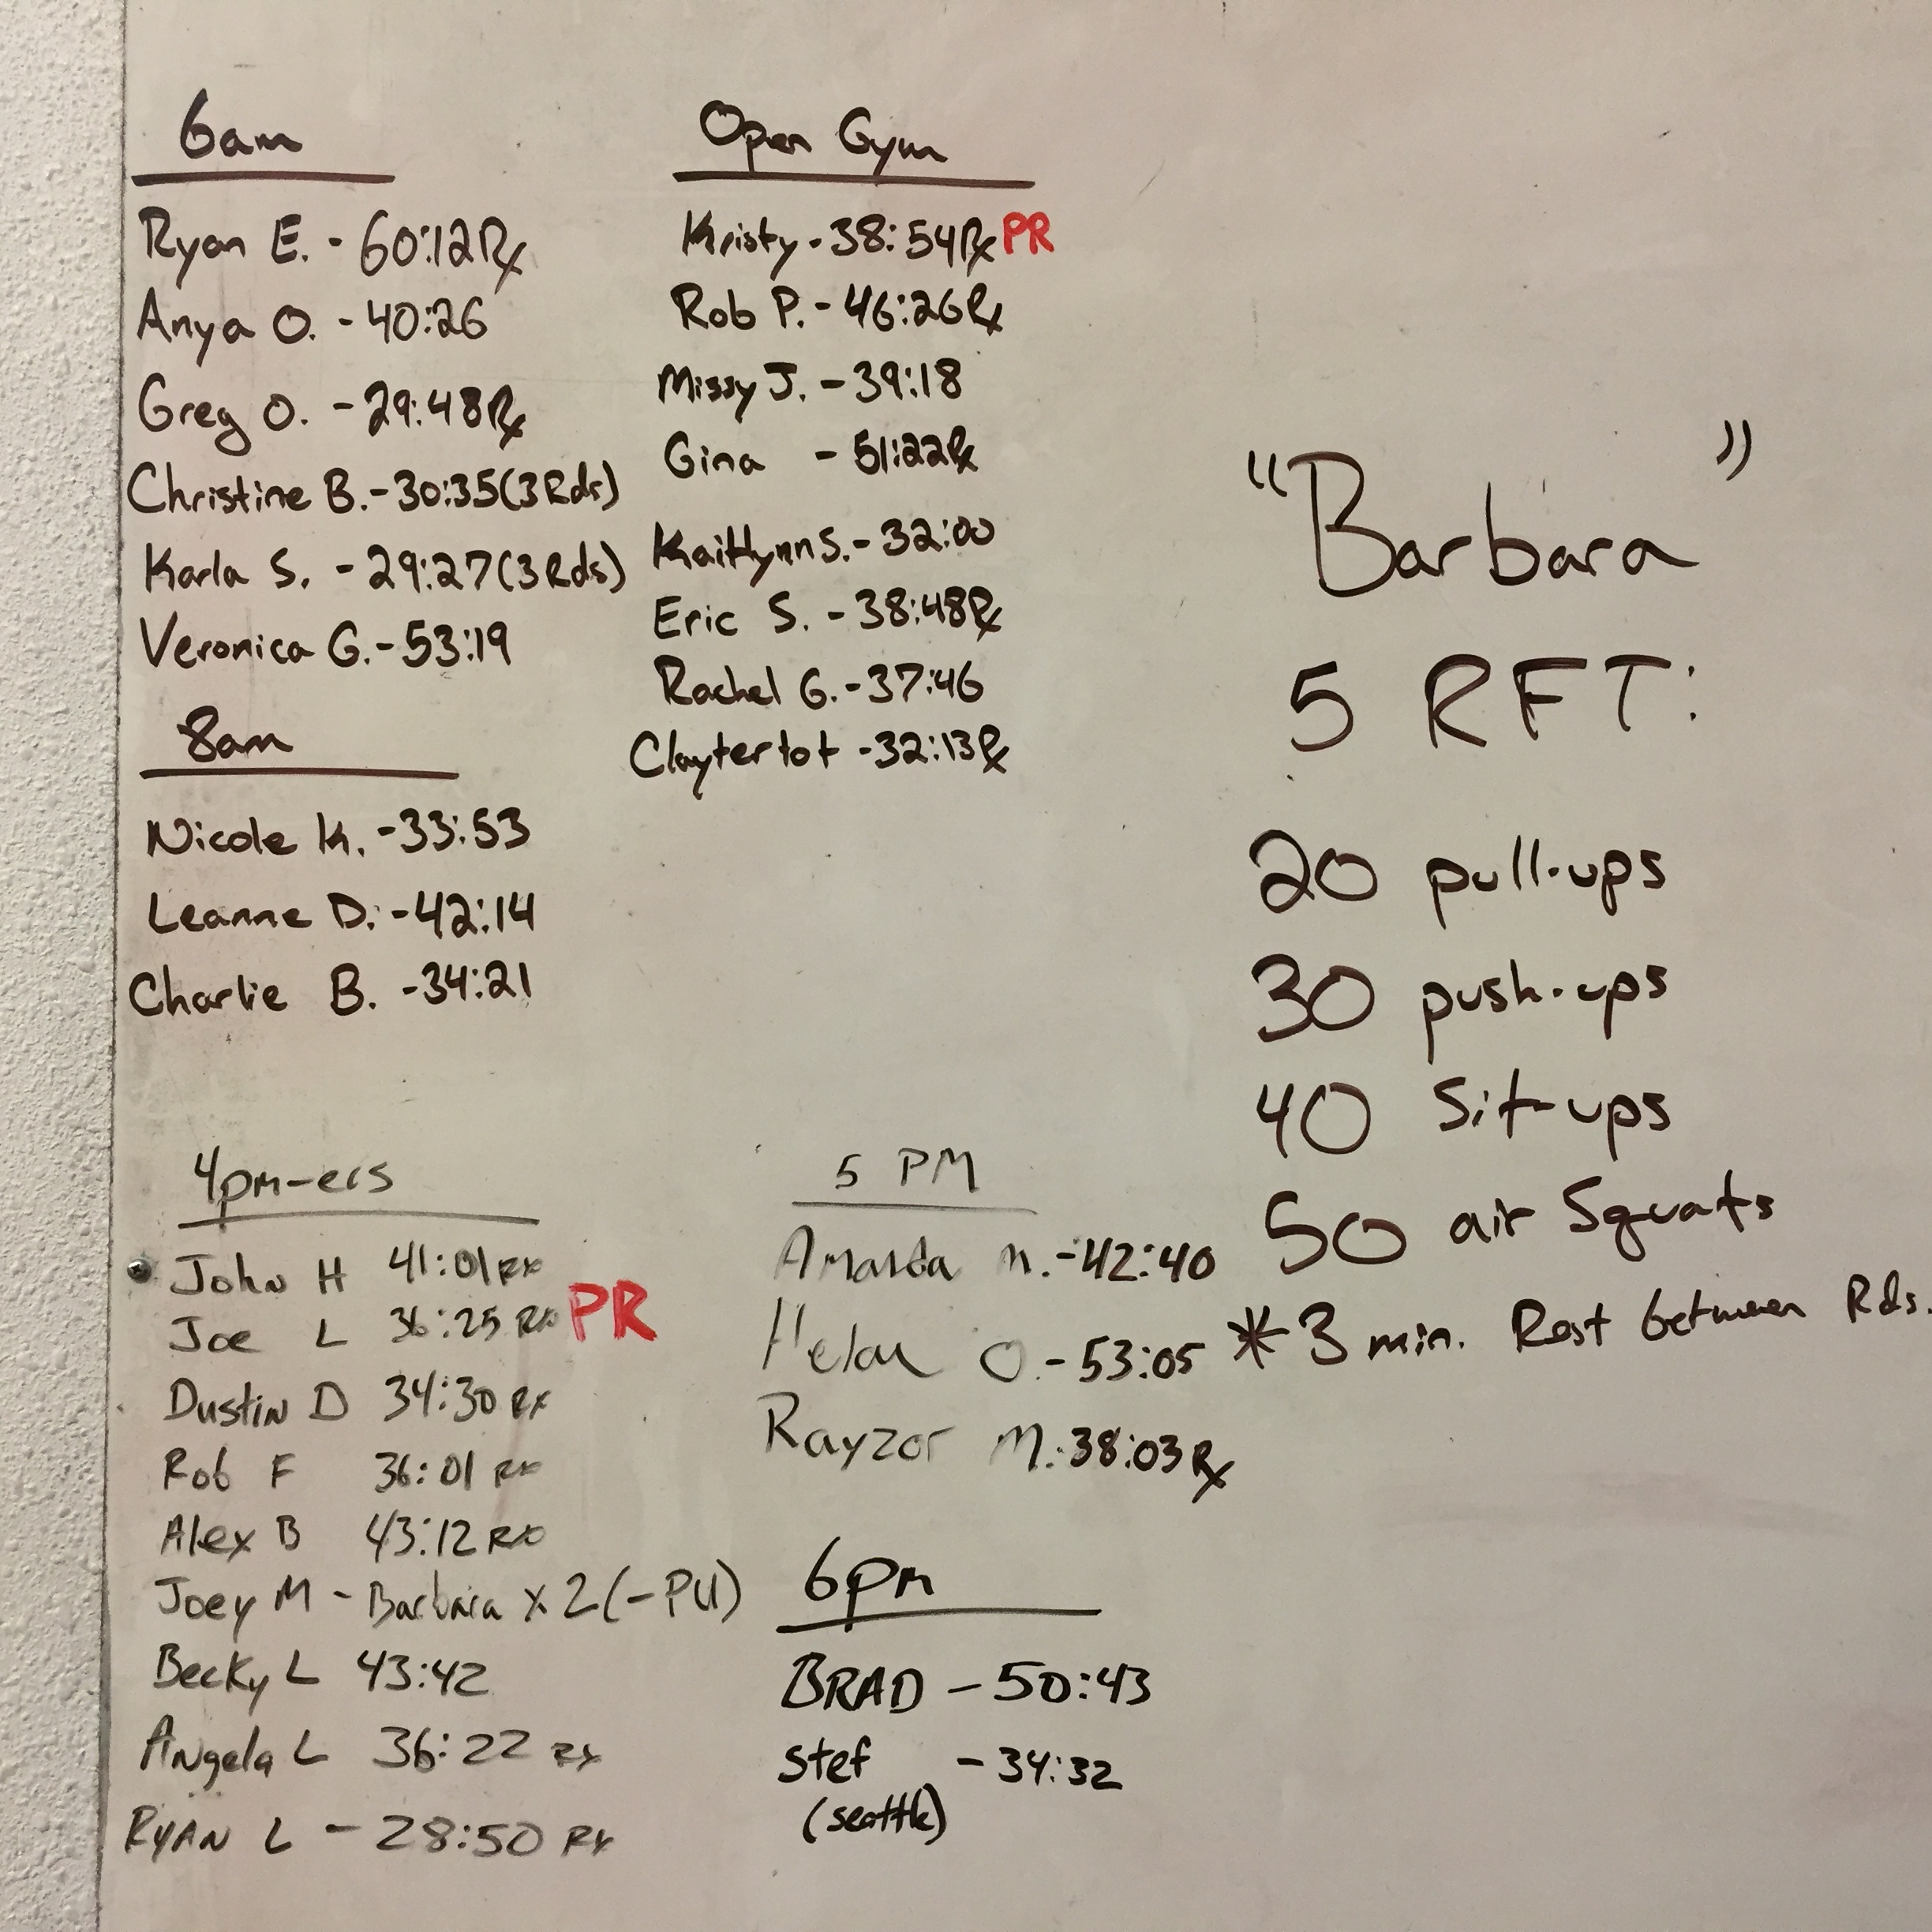 6am
Ryan E. - 60:12 Rx
Anya O. - 40:26
Greg O. - 29:48 Rx
Christine B. - 30:35 (3 Rds)
Karla S. - 29:27 (3 Rds)
Veronica G. - 53:19
8am
Nicole K. - 33:53
Leanne D. - 42:14
Charlie B. - 34:21
Open Gym
Kristy - 38:54 Rx PR
Rob P. - 46:26 Rx
Missy J. - 39:18
Gina - 51:22 Rx
Kaitlynn S. - 32:00
Eric S. - 38:48 Rx
Rachel G. - 37:46
Claytertot - 32:13 Rx
4pm-ers
John H 41:01 RX
Joe L 36:25 RX PR
Dustin D 34:30 RX
Rob F 36:01 RX
Alex B 43:12 RX
Joey M - Barbara x 2 (-PU)
Becky L 43:42
Angela L 36:22 RX
RYAN L - 28:50 RX
5 PM
Amanda M. - 42:40
Helen O. - 53:05
Rayzor M. - 38:03 Rx
6pm
BRAD - 50:43
Stef - 34:32
(seattle)
"Barbara"
5 RFT:
20 pull-ups
30 push-ups
40 Sit-ups
50 air Squats
*3 min. Rest between Rds.